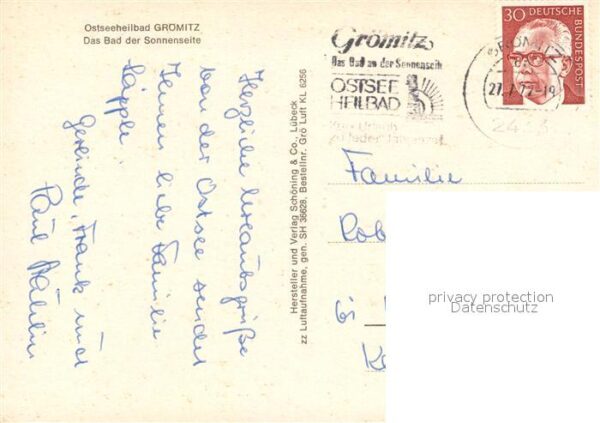 Ostseeheilbad GRÖMITZ
Das Bad der Sonnenseite
Herzliche Urlaubsgrüße
von der Ostsee sendet
Ihnen liebe Familie
Läpple!
Gerlinde, Frank und
Paul
Hersteller und Verlag Schöning & Co., Lübeck
zz Luftaufnahme, gen. SH 36628, Bestellnr. Grö Luft KL 6256
Grömitz
Das Bad an der Sonnenseite
OSTSEE
HEILBAD
zu jeder Jahreszeit
GRÖMITZ
27.7.77-19
2433
30 DEUTSCHE
BUNDESPOST
Familie
Rob
privacy protection
Datenschutz